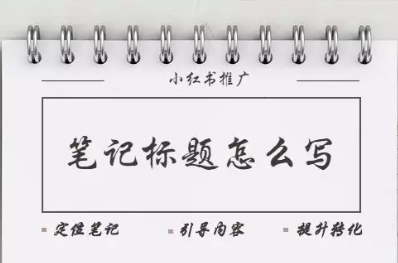 小红书推广
笔记标题怎么写
定位笔记 引导内容 提升转化